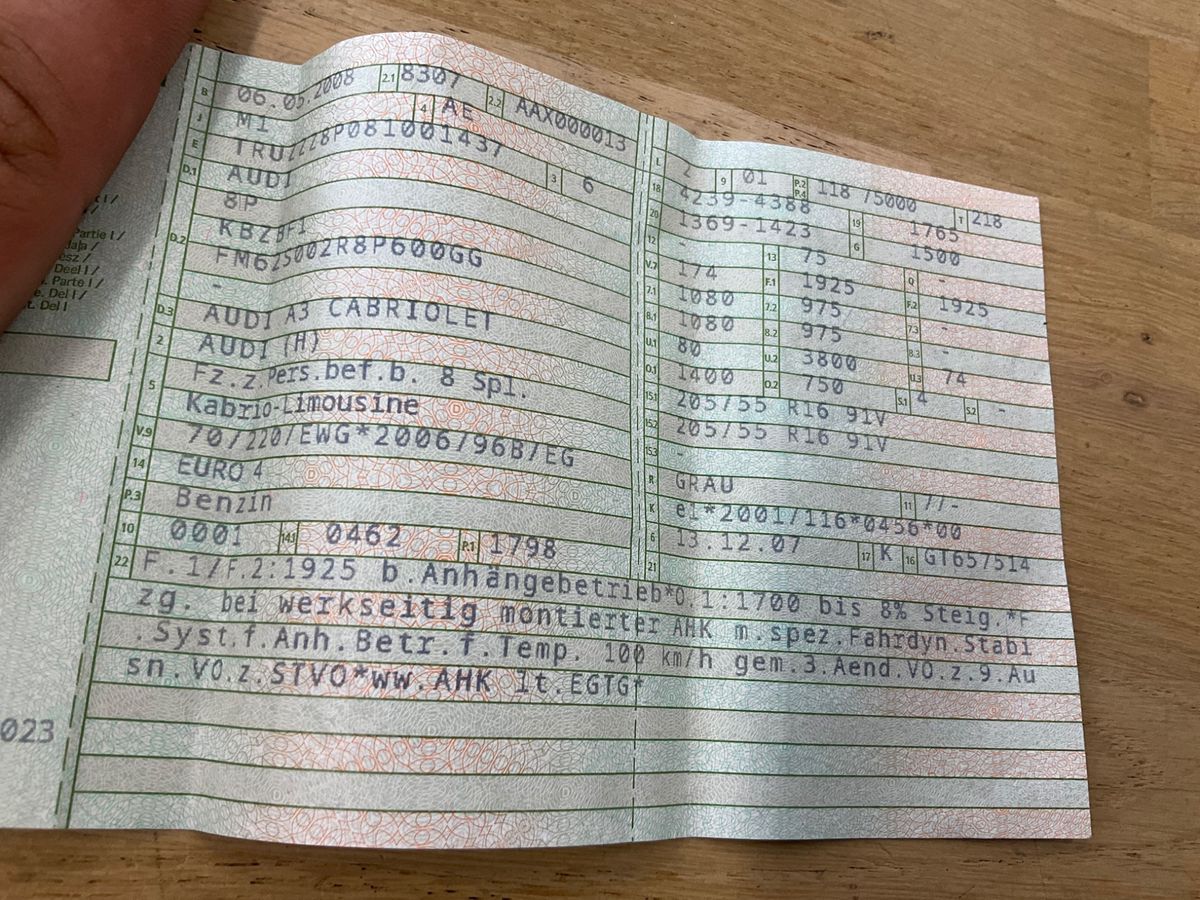 Partie I /
Deel I /
Parte I /
Del I /
Del I
023
B 06.05.2008 2.1 8307 2.2 AAX000013
J M1 4 AE
E TRUZZZ8P081001437 3 6
D.1 AUDI
8P
D.2 KBZBF1
FM62S002R8P600GG
-
D.3 AUDI A3 CABRIOLET
2 AUDI (H)
5 Fz.z.Pers.bef.b. 8 Spl.
Kabrio-Limousine
V.9 70/220/EWG*2006/96B/EG
14 EURO 4
P.3 Benzin
10 0001 14.1 0462 P.1 1798
L 2 9 01 P.2 P.4 118 /5000 T 218
18 4239-4388 19 1765
20 1369-1423 G 1500
12 13 75 Q -
V.7 174 F.1 1925 F.2 1925
7.1 1080 7.2 975 7.3 -
8.1 1080 8.2 975 8.3 -
U.1 80 U.2 3800 U.3 74
O.1 1400 O.2 750 S.1 4 S.2 -
15.1 205/55 R16 91V
15.2 205/55 R16 91V
15.3 -
R GRAU 11 7/-
K e1*2001/116*0456*00
6 13.12.07 17 K 16 GT657514
21
22 F.1/F.2:1925 b.Anhängebetrieb*O.1:1700 bis 8% Steig.*F
zg. bei werkseitig montierter AHK m.spez.Fahrdyn.Stabi
.Syst.f.Anh.Betr.f.Temp. 100 km/h gem.3.Aend.VO.z.9.Au
sn.VO.z.STVO*ww.AHK lt.EGTG*